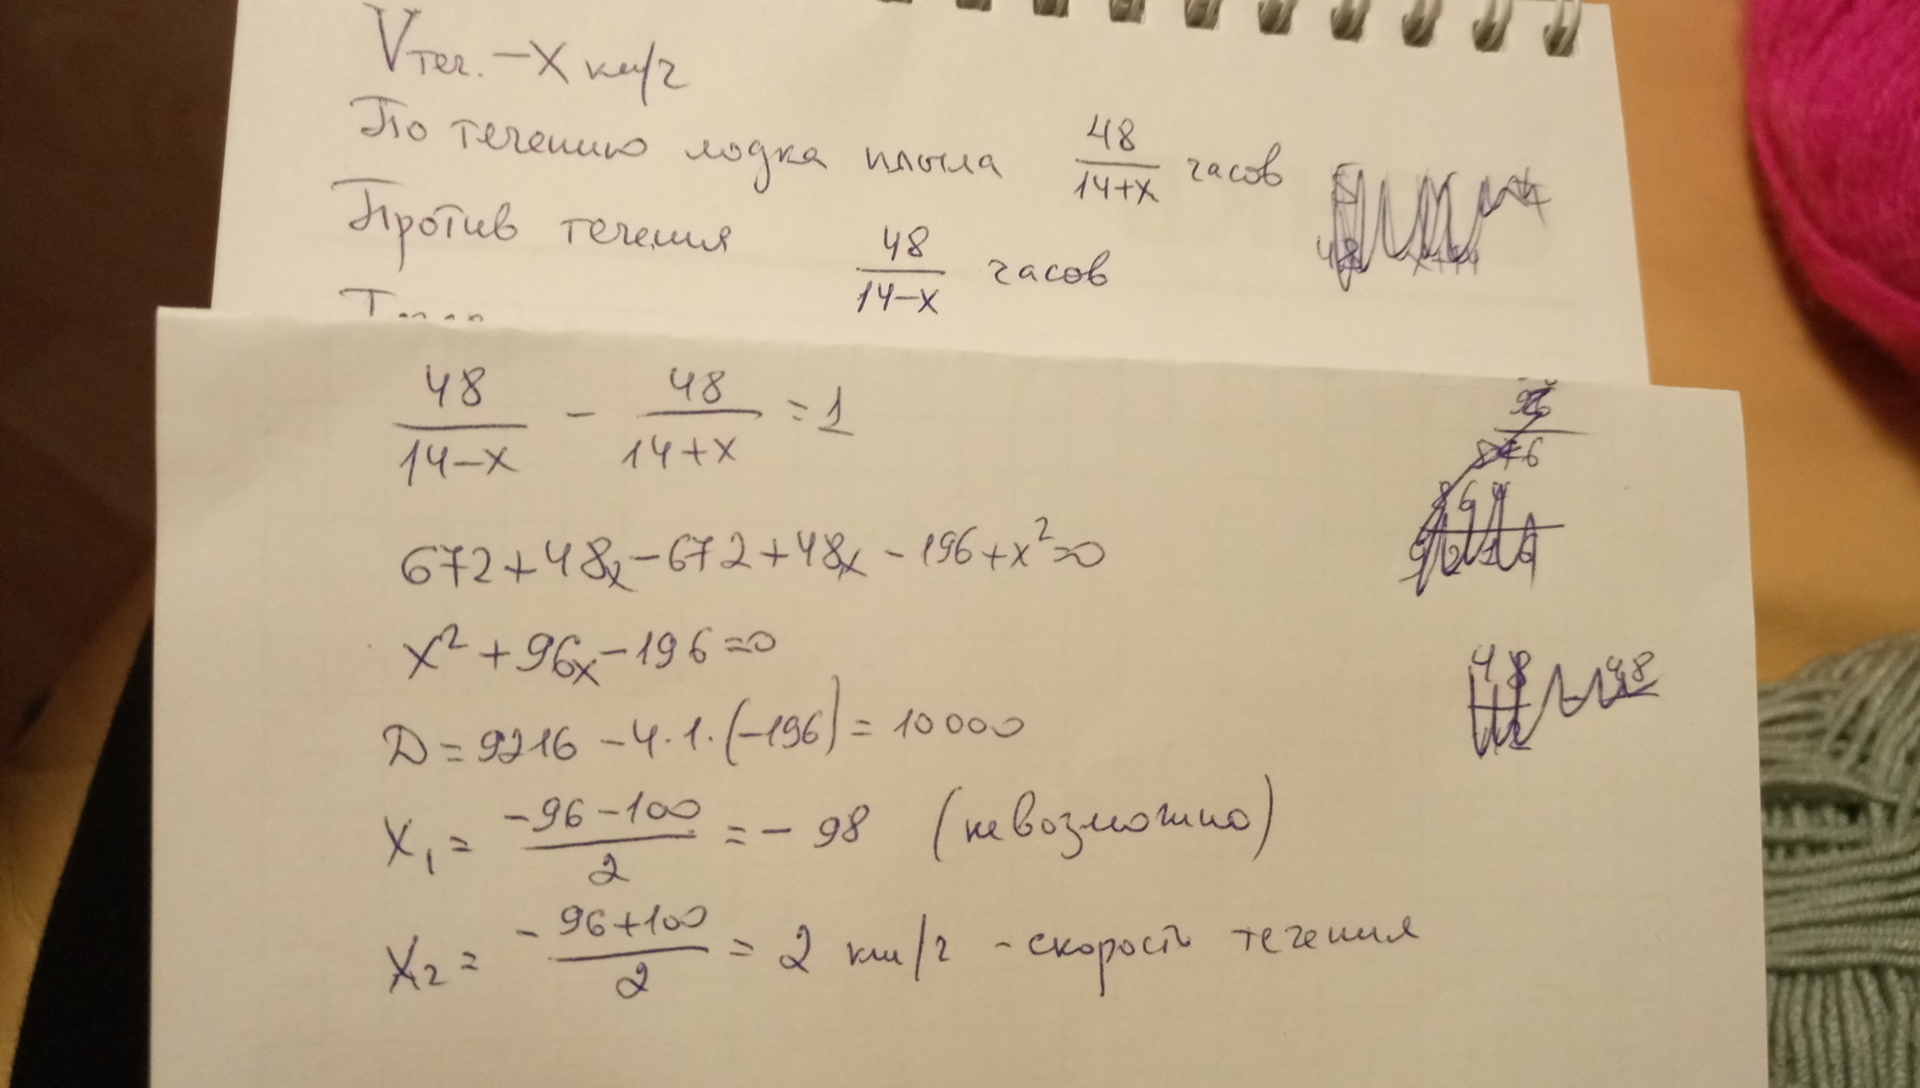 Vтеч. – x км/ч
По течению лодка плыла 48/(14+x) часов
Против течения 48/(14–x) часов
48/(14–x) – 48/(14+x) = 1
672+48x–672+48x–196+x²=0
x²+96x–196=0
Д=9216–4·1·(–196)=10000
x₁= (–96–100)/2 = –98 (невозможно)
x₂= (–96+100)/2 = 2 км/ч – скорость течения